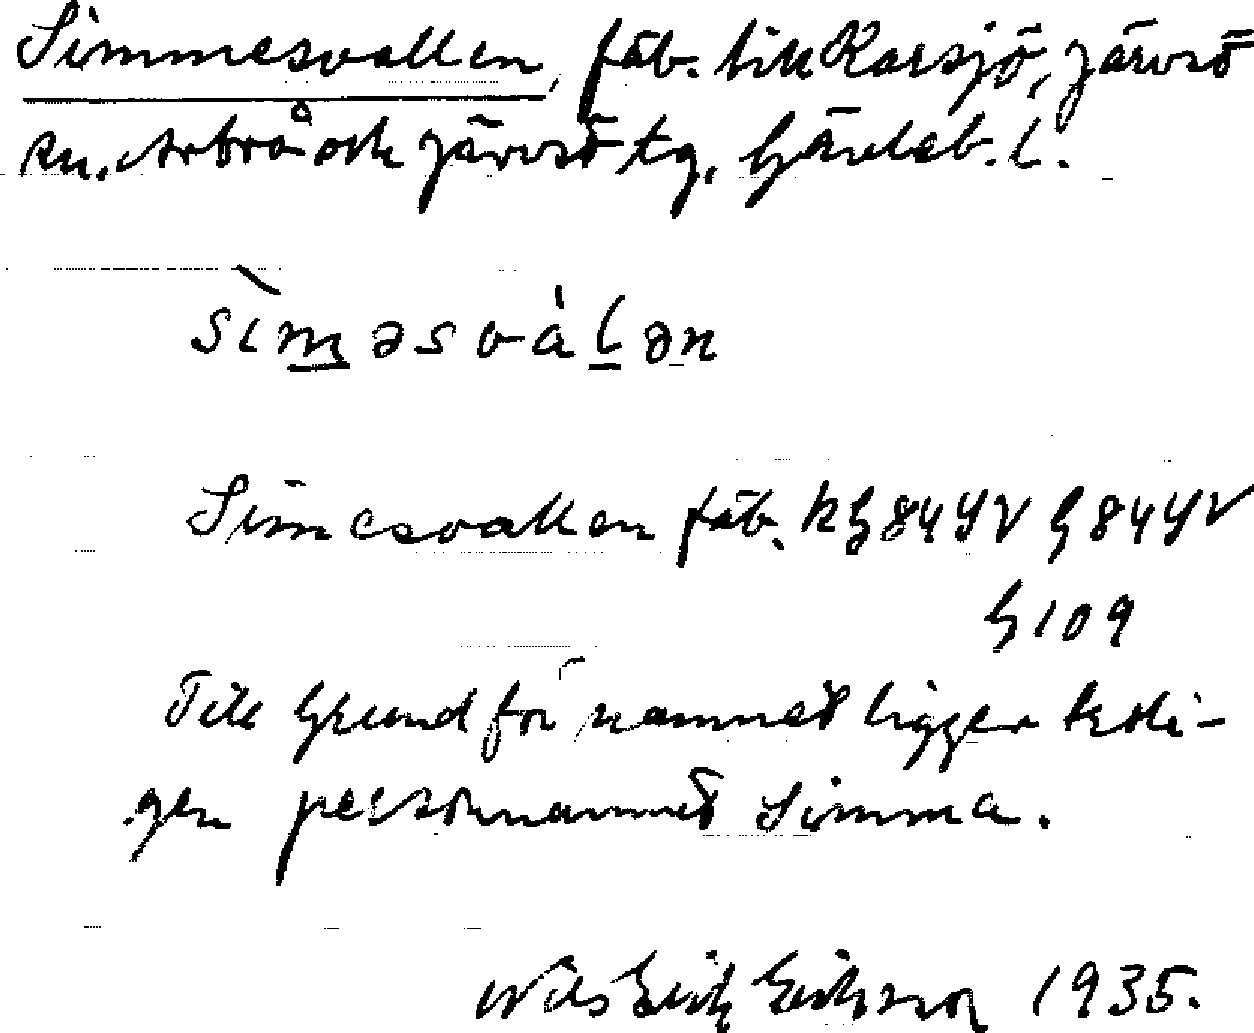 Simmesvallen, fäb. till Karsjö, Järvsö
sn. Arbrå och Järvsö tg, Gävleb. l.
sìməsvàlən
Simesvallen fäb. kg 84 YV G 84 YV
G 109
Till grund för namnet ligger troli-
gen personnamnet Simma.
Nils Erik Eriksson 1935.